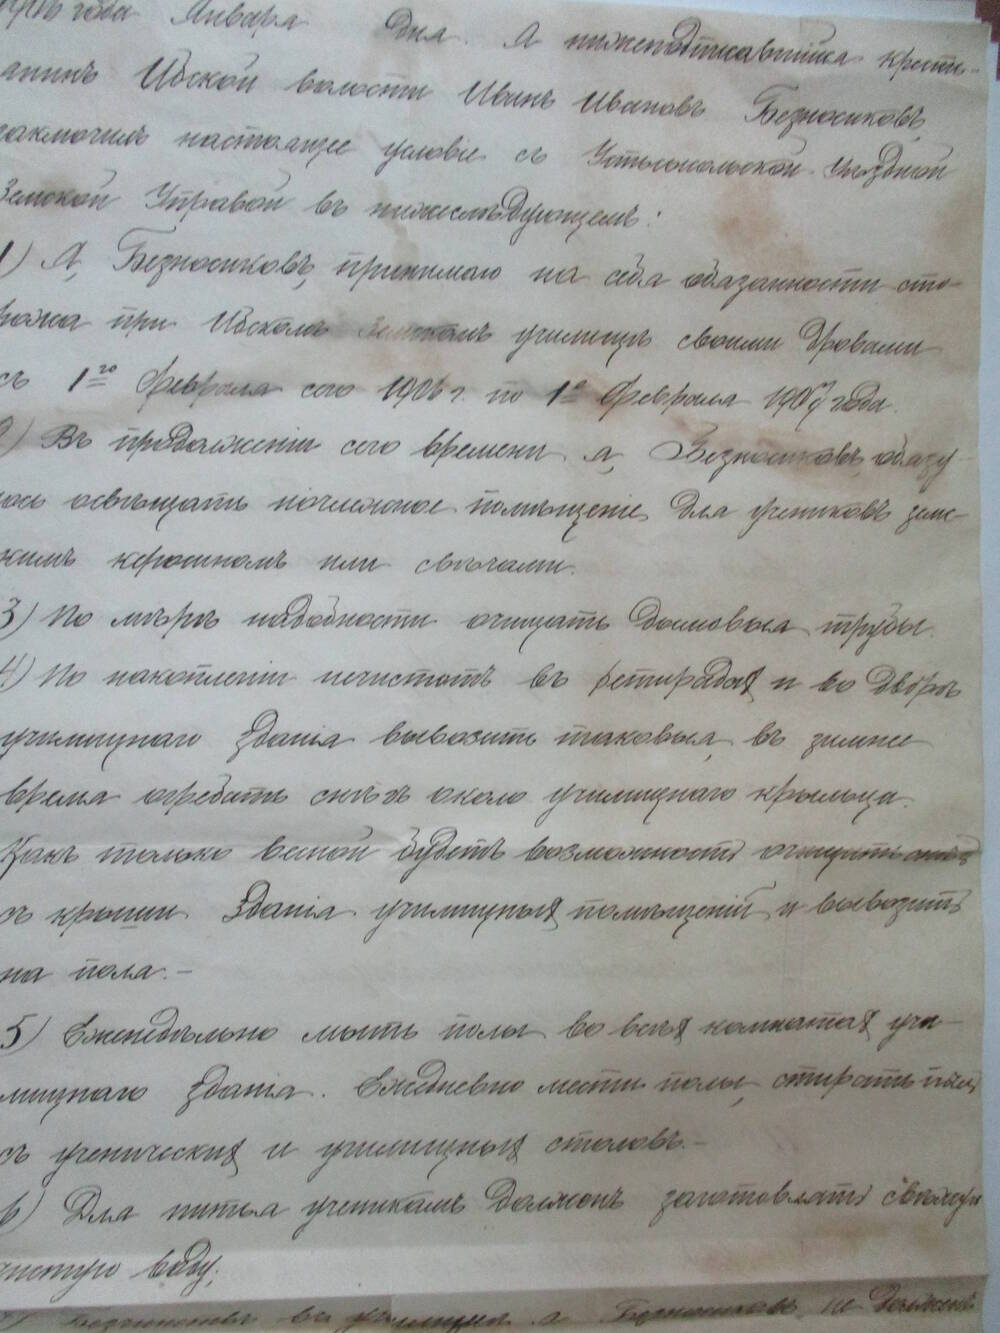 1906 года Января дня. Я нижеподписавшийся крестья-
анинъ Ибской волости Иванъ Ивановъ Безносиковъ,
заключилъ настоящее условіе съ Устьсысольской Уѣздной
Земской Управой въ нижеслѣдующемъ:
1) Я, Безносиковъ, принимаю на себя обязанности сто-
рожа при Ибскомъ Земскомъ училищѣ своими дровами
съ 1го Февраля сего 1906 г. по 1е Февраля 1907 года.
2) Въ продолженіи сего времени я, Безносиковъ, обязу-
юсь освѣщать ночлежное помѣщеніе для учениковъ земс-
кимъ керосиномъ или свѣчами.
3) По мѣрѣ надобности очищать дымовыя трубы.
4) По накопленіи нечистотъ въ ретирадахъ и во дворѣ
училищнаго зданія вывозить таковыя, въ зимнее
время огребать снѣгъ около училищнаго крыльца.
Какъ только весной будетъ возможность очищать снѣгъ
съ крыши зданія училищныхъ помѣщеній и вывозить
на поля.—
5) Еженедѣльно мыть полы во всѣхъ комнатахъ учи-
лищнаго зданія. Ежедневно мести полы, стирать пыль
съ ученическихъ и училищныхъ столовъ.—
6) Для питья ученикамъ долженъ заготовлять свѣжую
чистую воду;
въ училищѣ я Безносиковъ не долженъ